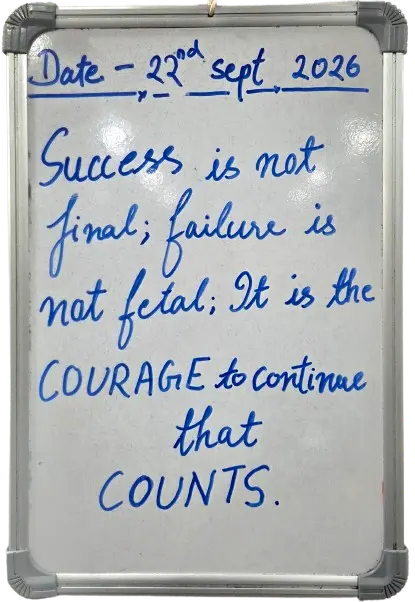 Date - 22nd sept 2026
Success is not
final; failure is
not fetal; It is the
COURAGE to continue
that
COUNTS.